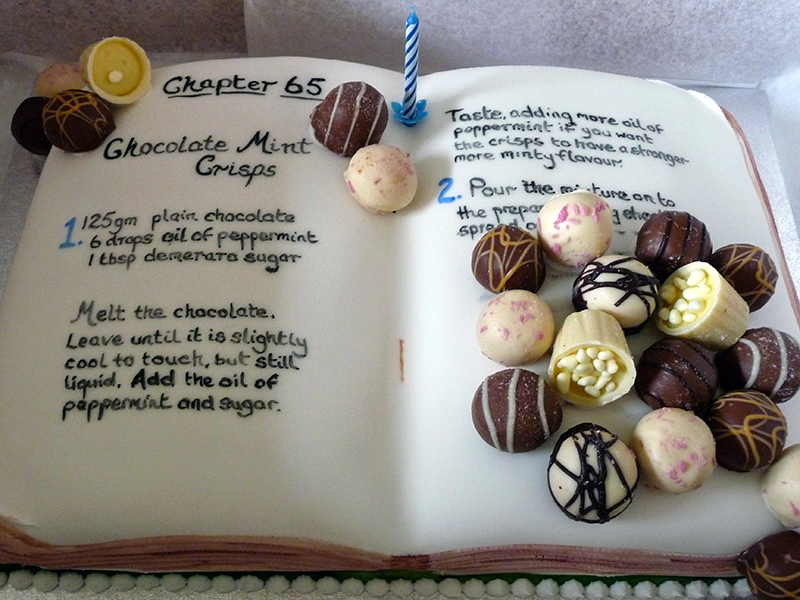 Chapter 65
Chocolate Mint
Crisps
1. 125gm plain chocolate
6 drops oil of peppermint
1 tbsp demerara sugar
Melt the chocolate.
Leave until it is slightly
cool to touch, but still
liquid. Add the oil of
peppermint and sugar.
Taste, adding more oil of
peppermint if you want
the crisps to have a stronger
more minty flavour.
2. Pour the mixture on to
the